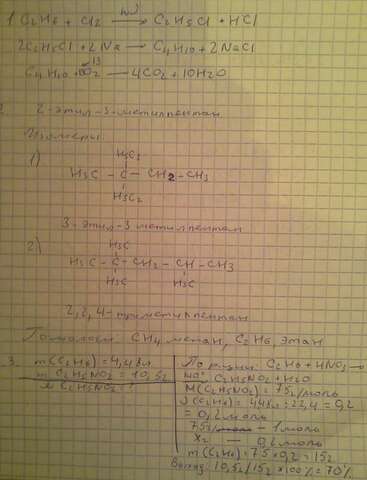 1 C2H6 + Cl2 hν → C2H5Cl + HCl
2C2H5Cl + 2Na → C4H10 + 2NaCl
C4H10 + O2 13 — 4CO2 + 10H2O
2-этил-3-метилпентан
Изомеры
1)
H3C
H3C - C - CH2 - CH3
H5C2
3-этил-3 метилпентан
2)
H3C
H3C - C - CH2 - CH - CH3
H3C H3C
2,2,4-триметилпентан
Гомологи CH4 метан, C2H6 этан
3. m(C2H6) = 4,48л
m C2H5NO2 = 10,5г
C2H5NO2 - ?
C2H6 + HNO3 →
C2H5NO2 + H2O
M(C2H5NO2) = 75г/моль
(C2H6) = 4,48л : 22,4 = 0,2
= 0,2 моль
75г/моль — 1 моль
xг — 0,2 моль
m(C2H6) = 75 × 0,2 = 15г
Выход 10,5г/15г × 100% = 70%